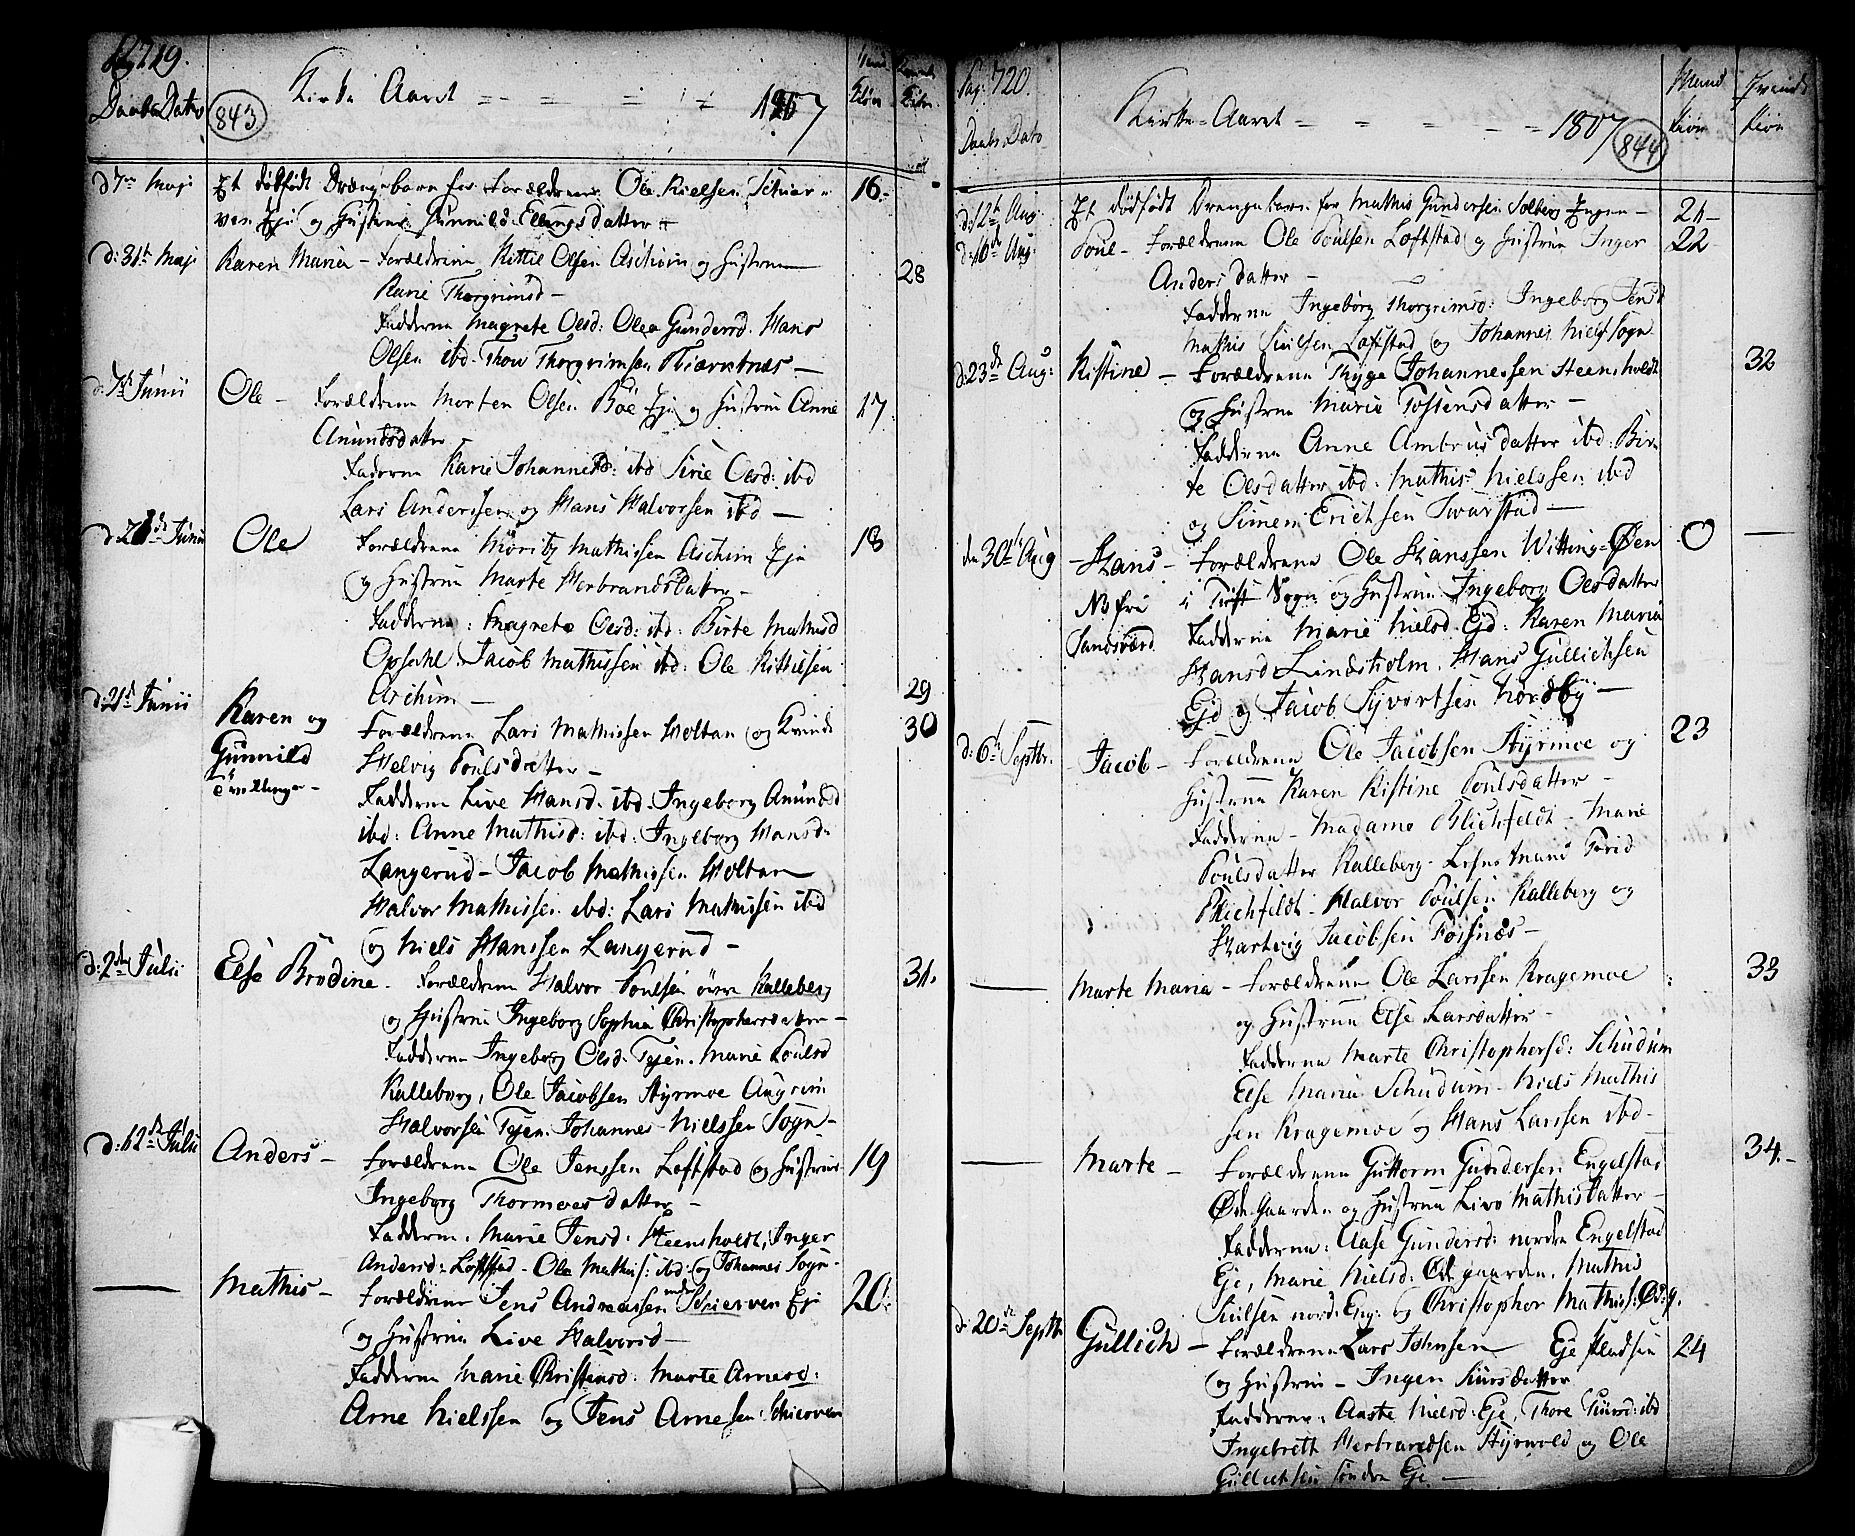 Pag. 719.
Daabs Dato
843
Kirke Aaret = = = 1807
Mand Kiøn
Kvinde Kiøn
d 7de Maji Et dødfødt Drængebarn for Forældrene Ole Nielsen Schier- 16.
ven Eje og Hustrue Gunnild Ellingsdatter
d: 31te Maji Karen Maria - Forældrene Kittil Olsen Aschim og Hustrue 28
Karie Thorgrimsd -
Fadderne Magrete Olesd: Olea Gundersd. Hans
Olsen ibd. Thow Thorgrimsen Thiærnæs -
d. 7de Junii Ole - Forældrene Morten Olsen Böe Eje og Hustrue Anne 17
Amundsdatter
Fadderne Karie Johannesd: ibd Sirie Olesd: ibd
Lars Anderssen og Hans Halvorsen ibd -
d. 21de Junii Ole Forældrene Moritz Mathissen Aschim Eje 18
og Hustrue Marte Herbrandsdatter -
Fadderne: Magrete Olesd: ibd: Birte Mathisd
Opsahl. Jacob Mathissen ibd: Ole Kittilsen
Aschim -
d: 21de Junii 29
Karen og Forældrene Lars Mathissen Holtan og Kvinde 30
Gunnild Helvig Poulsdatter -
tvillinger - Fadderne Live Hansd. ibd. Ingeborg Amundsd
ibd: Anne Mathisd: ibd: Ingeborg Hansd.
Langerud - Jacob Mathissen Holtan
Halvor Mathissen ibd: Lars Mathissen ibd
og Niels Hanssen Langerud -
d: 2den Julii Else Brodine. Forældrene Halvor Poulsen övre Kalleberg 31.
og Hustrue Ingeborg Sophia Christophersdatter -
Fadderne Ingeborg Olsd. Tejen. Marie Poulsd
Kalleberg, Ole Jacobsen Styrmoe Augrim
Halvorsen Tejen. Johannes Nielssen Sogn -
d: 12te Julii Anders - Forældrene Ole Jenssen Loftstad og Hustrue 19
Ingeborg Thormoesdatter -
Fadderne. Marie Jensd: Steensholdt, Inger
Andersd: Loftstad - Ole Mathiss: ibd: og Johannes Sogn -
Mathis - Forældrene Jens Andreassen nedre Schierven Ej 20.
og Hustrue Live Halvorsd -
Fadderne Marie Christensd: Marte Arnesd:
Arne Nielssen og Jens Arnesen: Schierven
Pag: 720.
Daabs Dato
Kirke-Aaret - - - = = 1807
844
Mand Kiön
Kvinde Kiön
d: 12te Aug: Et dödfödt Drengebarn for Mathis Gundersen Solberg Engen - 21 -
d: 16de Aug: Poul - Forældrene Ole Poulsen Loftstad og Hustrue Inger 22
Andersdatter -
Fadderne Ingeborg Thorgrimsd: Ingeborg Jensd
Mathis Poulsen Loftstad og Johannes Niels: Sogn
d: 23de Aug: Kistine - Forældrene Thyge Johannessen Steensholdt 32
og Hustrue Marie Tostensdatter -
Fadderne Anne Ambrusdatter ibd: Bir-
te Olesdatter ibd. Mathis Nielssen ibd
og Simen Erichsen Svarstad -
den 30te Aug Hans - Forældrene Ole Hanssen Witting-Øen 0
NB fra i Tuft Sogn og Hustrue Ingeborg Olesdatter
Sandsværd Fadderne Marie Nielsd. Ejd: Karen Maria
Hansd Lindsholm. Hans Gullichsen
Ejd og Jacob Syvertsen Nordby -
d: 6te Septbr. Jacob - Forældrene Ole Jacobsen Styrmoe og 23
Hustrue Karen Kistine Poulsdatter -
Fadderne - Madame Blichfeldt - Marie
Poulsdatter Kalleberg - Lesnsmand Frid
Blichfeldt - Halvor Poulsen Kalleberg og
Hartvig Jacobsen Fosnæs -
Marte Maria - Forældrene Ole Larssen Kragemoe 33
og Hustrue Else Larsdatter -
Fadderne Marte Christophersd: Schudum
Else Maria Schudum - Niels Mathis
sen Kragemoe og Hans Larssen ibd -
Marte - Forældrene Guttorm Gundersen Engelstad 34. -
Ødegaarden og Hustrue Live Mathisdatter -
Fadderne: Aase Gundersd: nordre Engelstad
Eje, Marie Nielsd: Ødegaarden. Mathis
Poulsen nord: Eng: og Christopher Mathiss: Ødeg.
d: 20de Septbr Gullich - Forældrene Lars Johnsen Eje Pladsen 24
og Hustrue - Ingen Siursdatter
Fadderne: Aaste Nielsd: Eje, Thore Siursd: ibd
Ingebrett Herbrandsen Styrvold og Ole
Gullichsen söndre Eje -